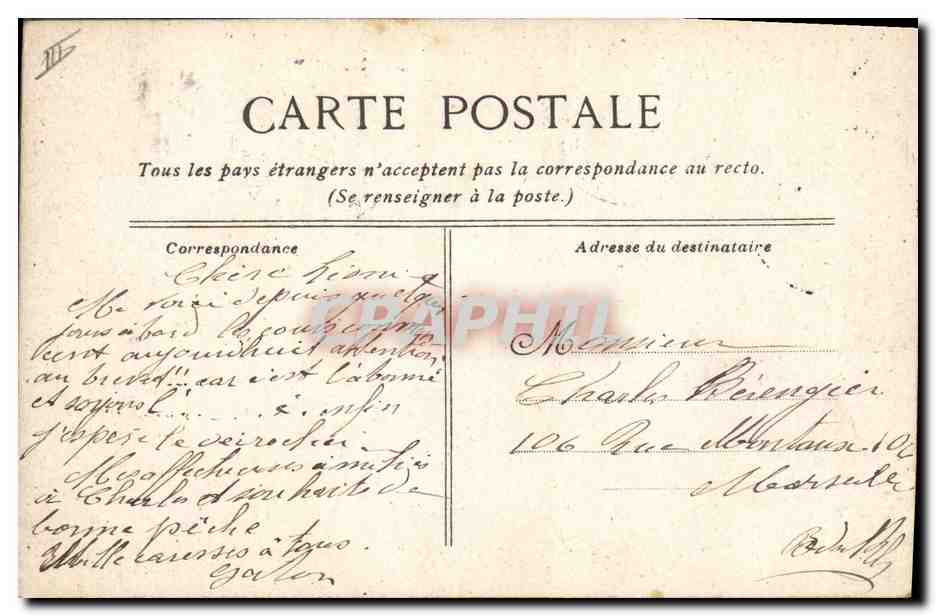 III
CARTE POSTALE
Tous les pays étrangers n'acceptent pas la correspondance au recto.
(Se renseigner à la poste.)
Correspondance
Chère
Me voici depuis quelques
jours à bord les cours
aujourd'hui attention
au brevet!! car c'est l'abonné
et soyons enfin
j'espère le
Mes affectueuses amitiés
à Charles et souhaits de
bonne pêche
Mille caresses à tous.
Adresse du destinataire
Monsieur
Charles Bérengier
106 Rue 106
Marseille
CPAPHIL